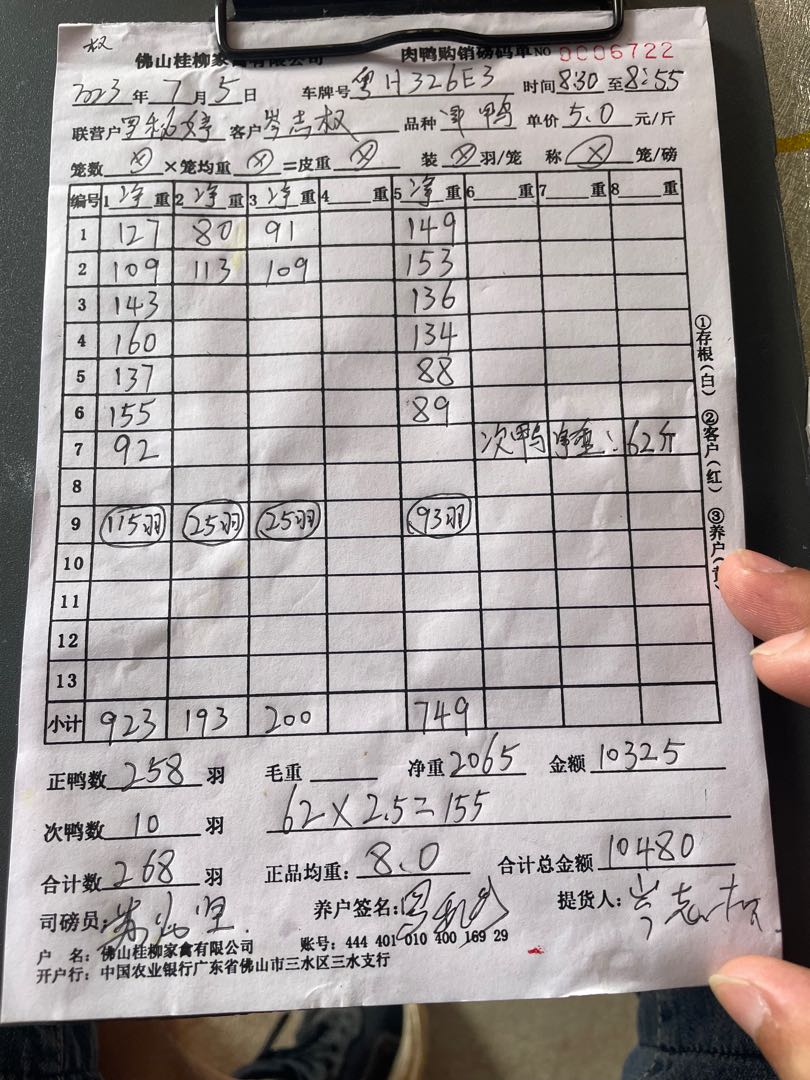 权
佛山桂柳家禽有限公司 肉鸭购销磅码单 NO 0006722
2023年7月5日 车牌号 粤H326E3 时间 8:30 至 8:55
联营户 客户 岑志权 品种 鸭 单价 5.0 元/斤
笼数 ⊗ ×笼均重 ⊗ =皮重 ⊗ 装 ⊗ 羽/笼 称 ⊗ 笼/磅
编号 1 净 重 2 净 重 3 净 重 4 重 5 净 重 6 重 7 重 8 重
1 127 80 91 149
2 109 113 109 153
3 143 136
4 160 134
5 137 88
6 155 89
7 92 次鸭净重:62斤
8
9 115羽 25羽 25羽 93羽
10
11
12
13
小计 923 193 200 749
正鸭数 258 羽 毛重 净重 2065 金额 10325
次鸭数 10 羽 62×2.5=155
合计数 268 羽 正品均重: 8.0 合计总金额 10480
司磅员: 养户签名: 提货人: 岑志权
户 名: 佛山桂柳家禽有限公司 账号: 444 401 010 400 169 29
开户行: 中国农业银行广东省佛山市三水区三水支行
①存根(白) ②客户(红) ③养户(